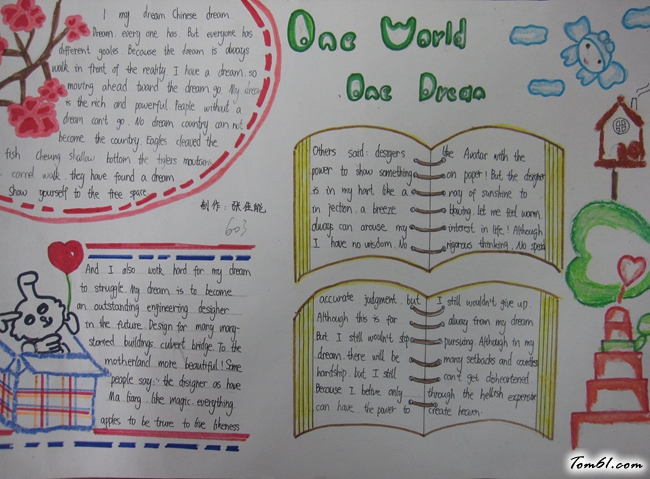 One World
One Dream
I my dream Chinese dream
Dream. every one has. But everyone has
different goales Because the dream is always
walk in front of the reality I have a dream. so
moving ahead toward the dream go. My dream
is the rich and powerful. People without a
dream can't go. No dream country can not
become the country. Eagles cleaved the
fish Cheung shallow bottom the tigers moutions
camel walk. they have found a dream
show yourself to the free space
制作:张佳
603
And I also work hard for my dream
to struggle. My dream is to become
an outstanding engineering desigher
in the future. Design for many many-
storied buildings culvert bridge. To the
motherland more beautiful! Some
people say: the desigher as have
Ma liang like magic. everything
apples to be trure to the likeness
Others said: desigers the Avatar with the
power to show something on paper! But the desigher
is in my hort like a ray of sunshine to
in jection. a breeze blowing. let me feel worm.
always can arouse my interest in life! Although
I have no wisdom. No rigorous thinking. No
accurate judgment. but I still wouldn't give up
Although this is far away from my dream
But I still wouldn't stop pursuing. Although in my
dream. there will be many setbacks and
hardship. but I still can't get disheartened.
Because I belive only through the hellish experience
can have the power to create heaven.
Tom61.com